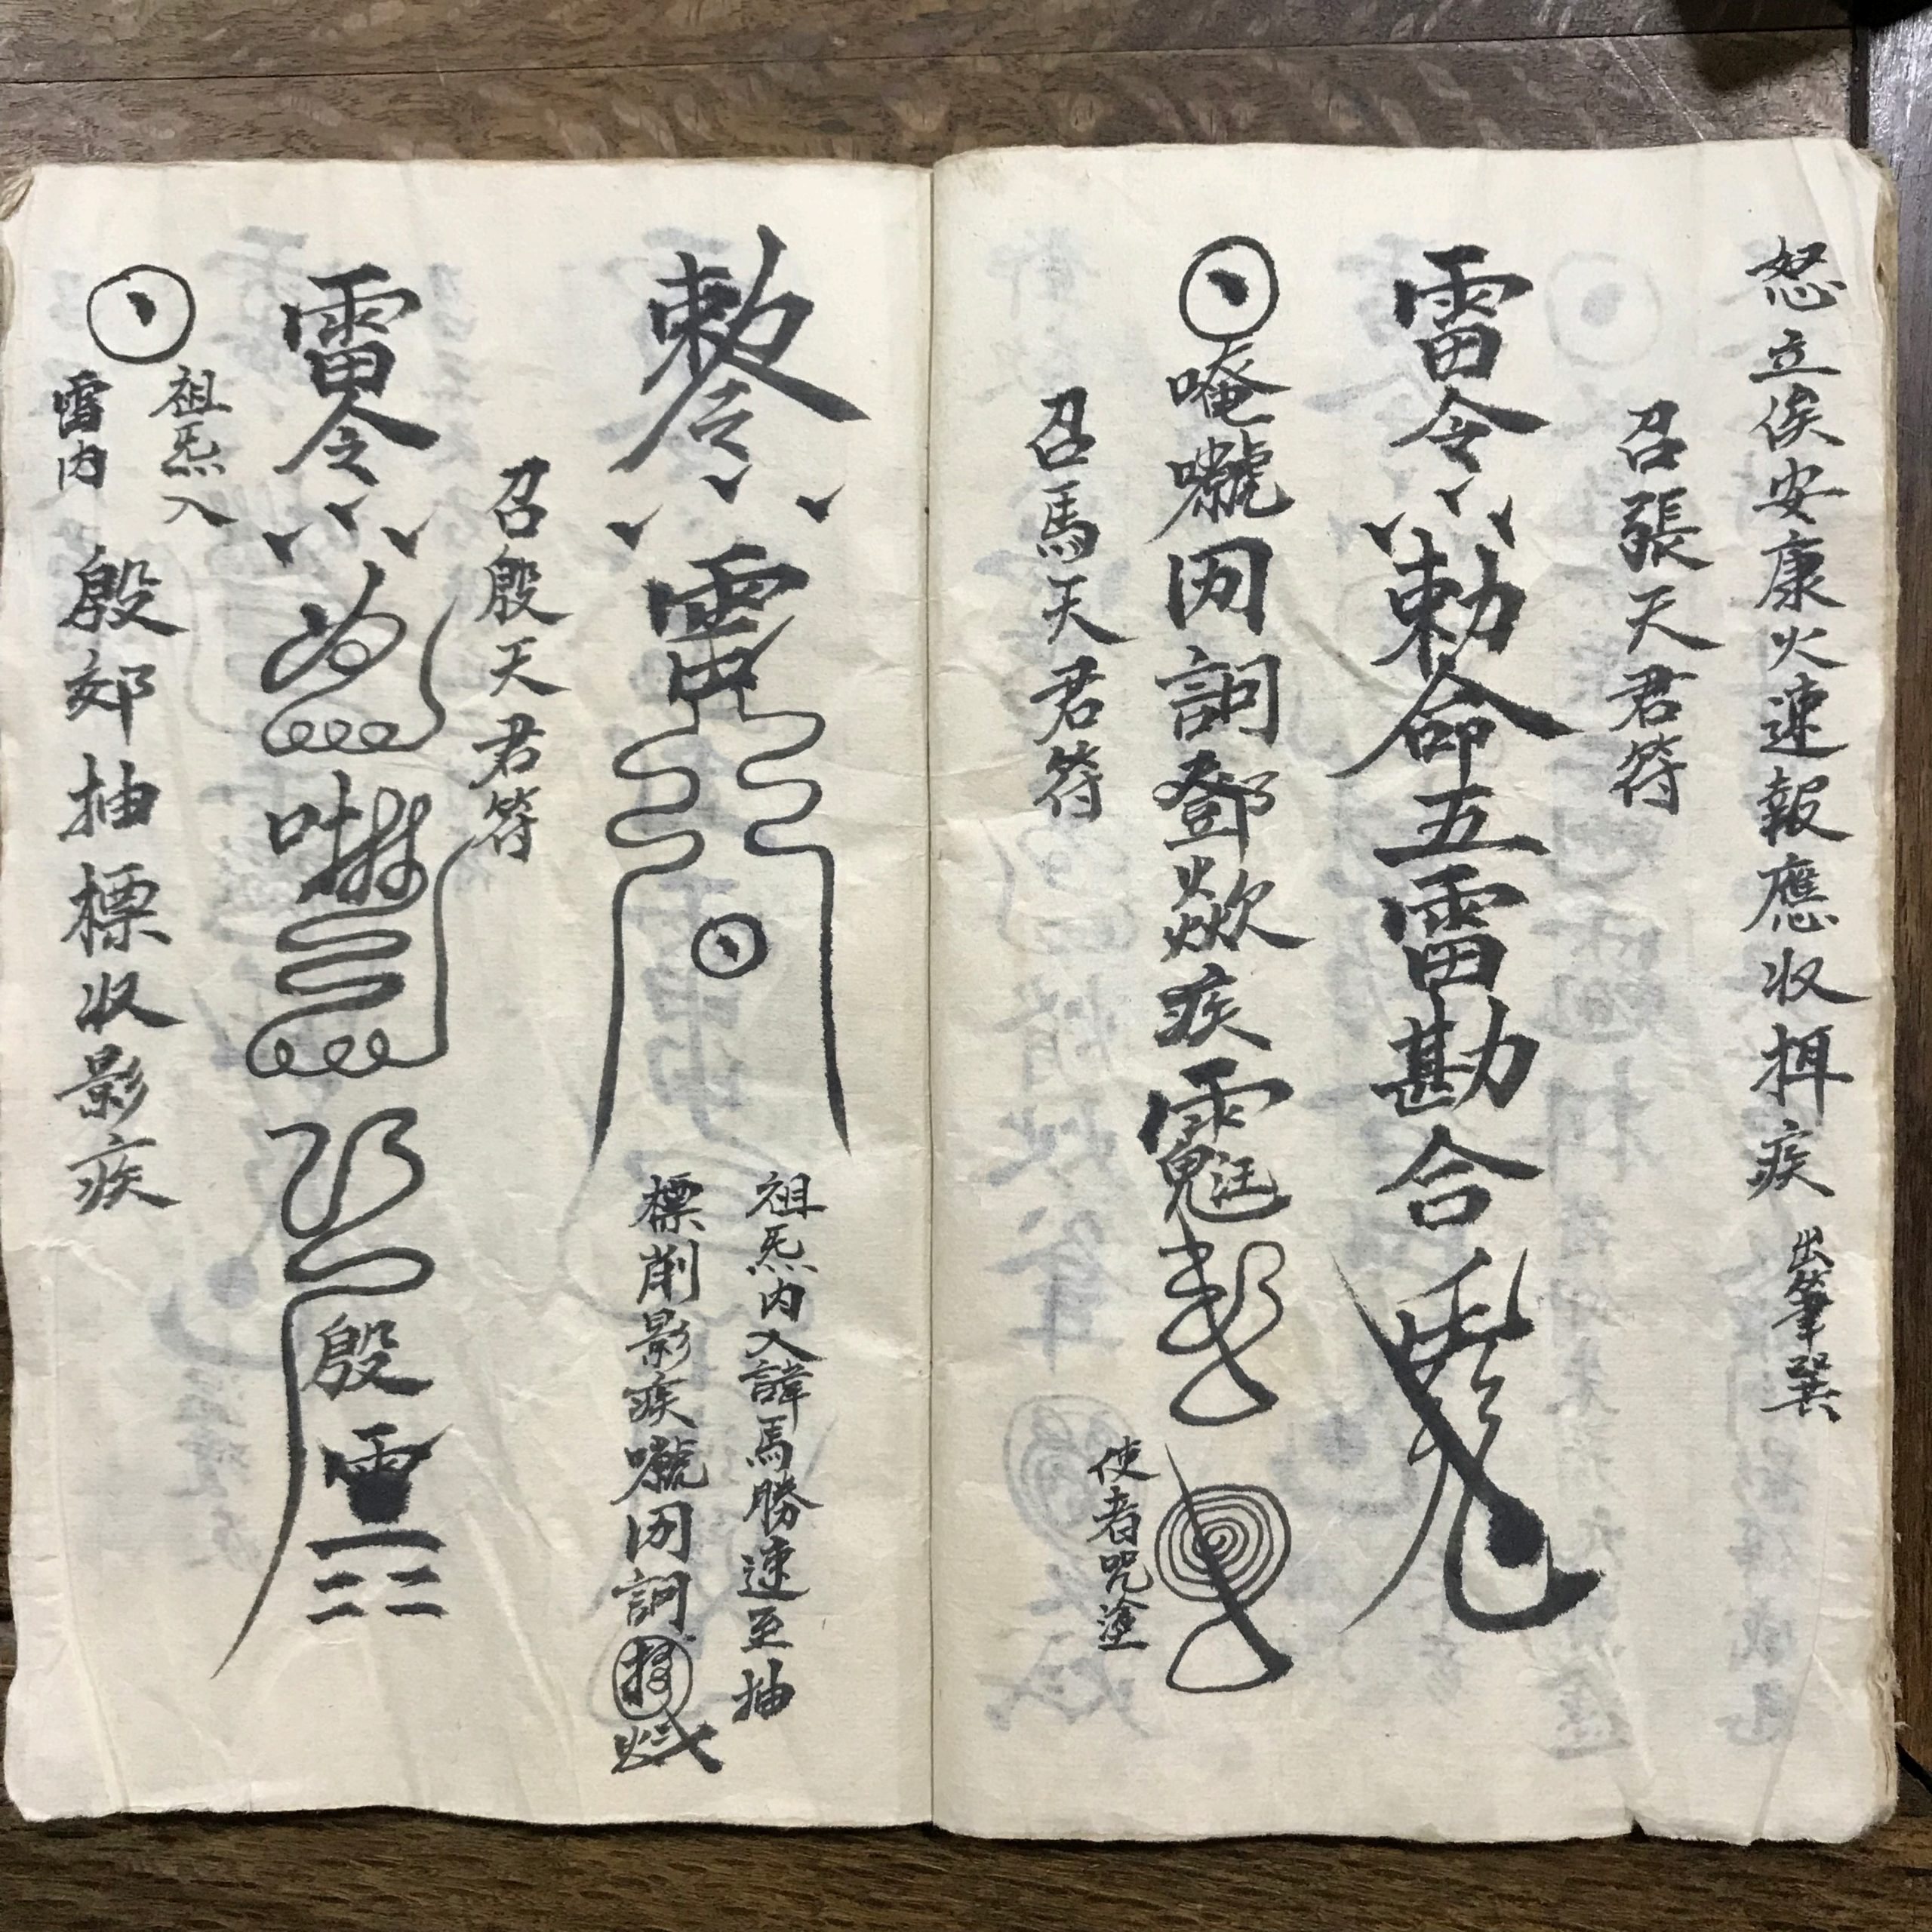 怒立俟安康火速報應収揖疾 出筆巽
召張天君符
雷令敕命五雷勘合
唵囇㘞訶鄧燚歘疾
使者咒塗
召馬天君符
敕令雷
祖炁内入諱馬勝速至抽
標削影疾㘞訶
召殷天君符
雷令 殷
祖炁入
雷内
殷郊抽標収影疾